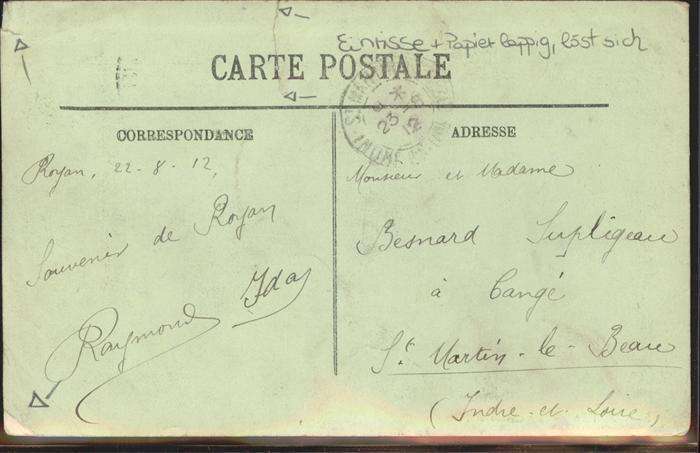 Einrisse + Papier lappig, löst sich
CARTE POSTALE
CORRESPONDANCE
Royan, 22-8-12,
Souvenir de Royan
Ida
Raymond
ADRESSE
Monsieur et Madame
Besnard Supligeau
à Cangé
St Martin-le-Beau
(Indre-et-Loire)